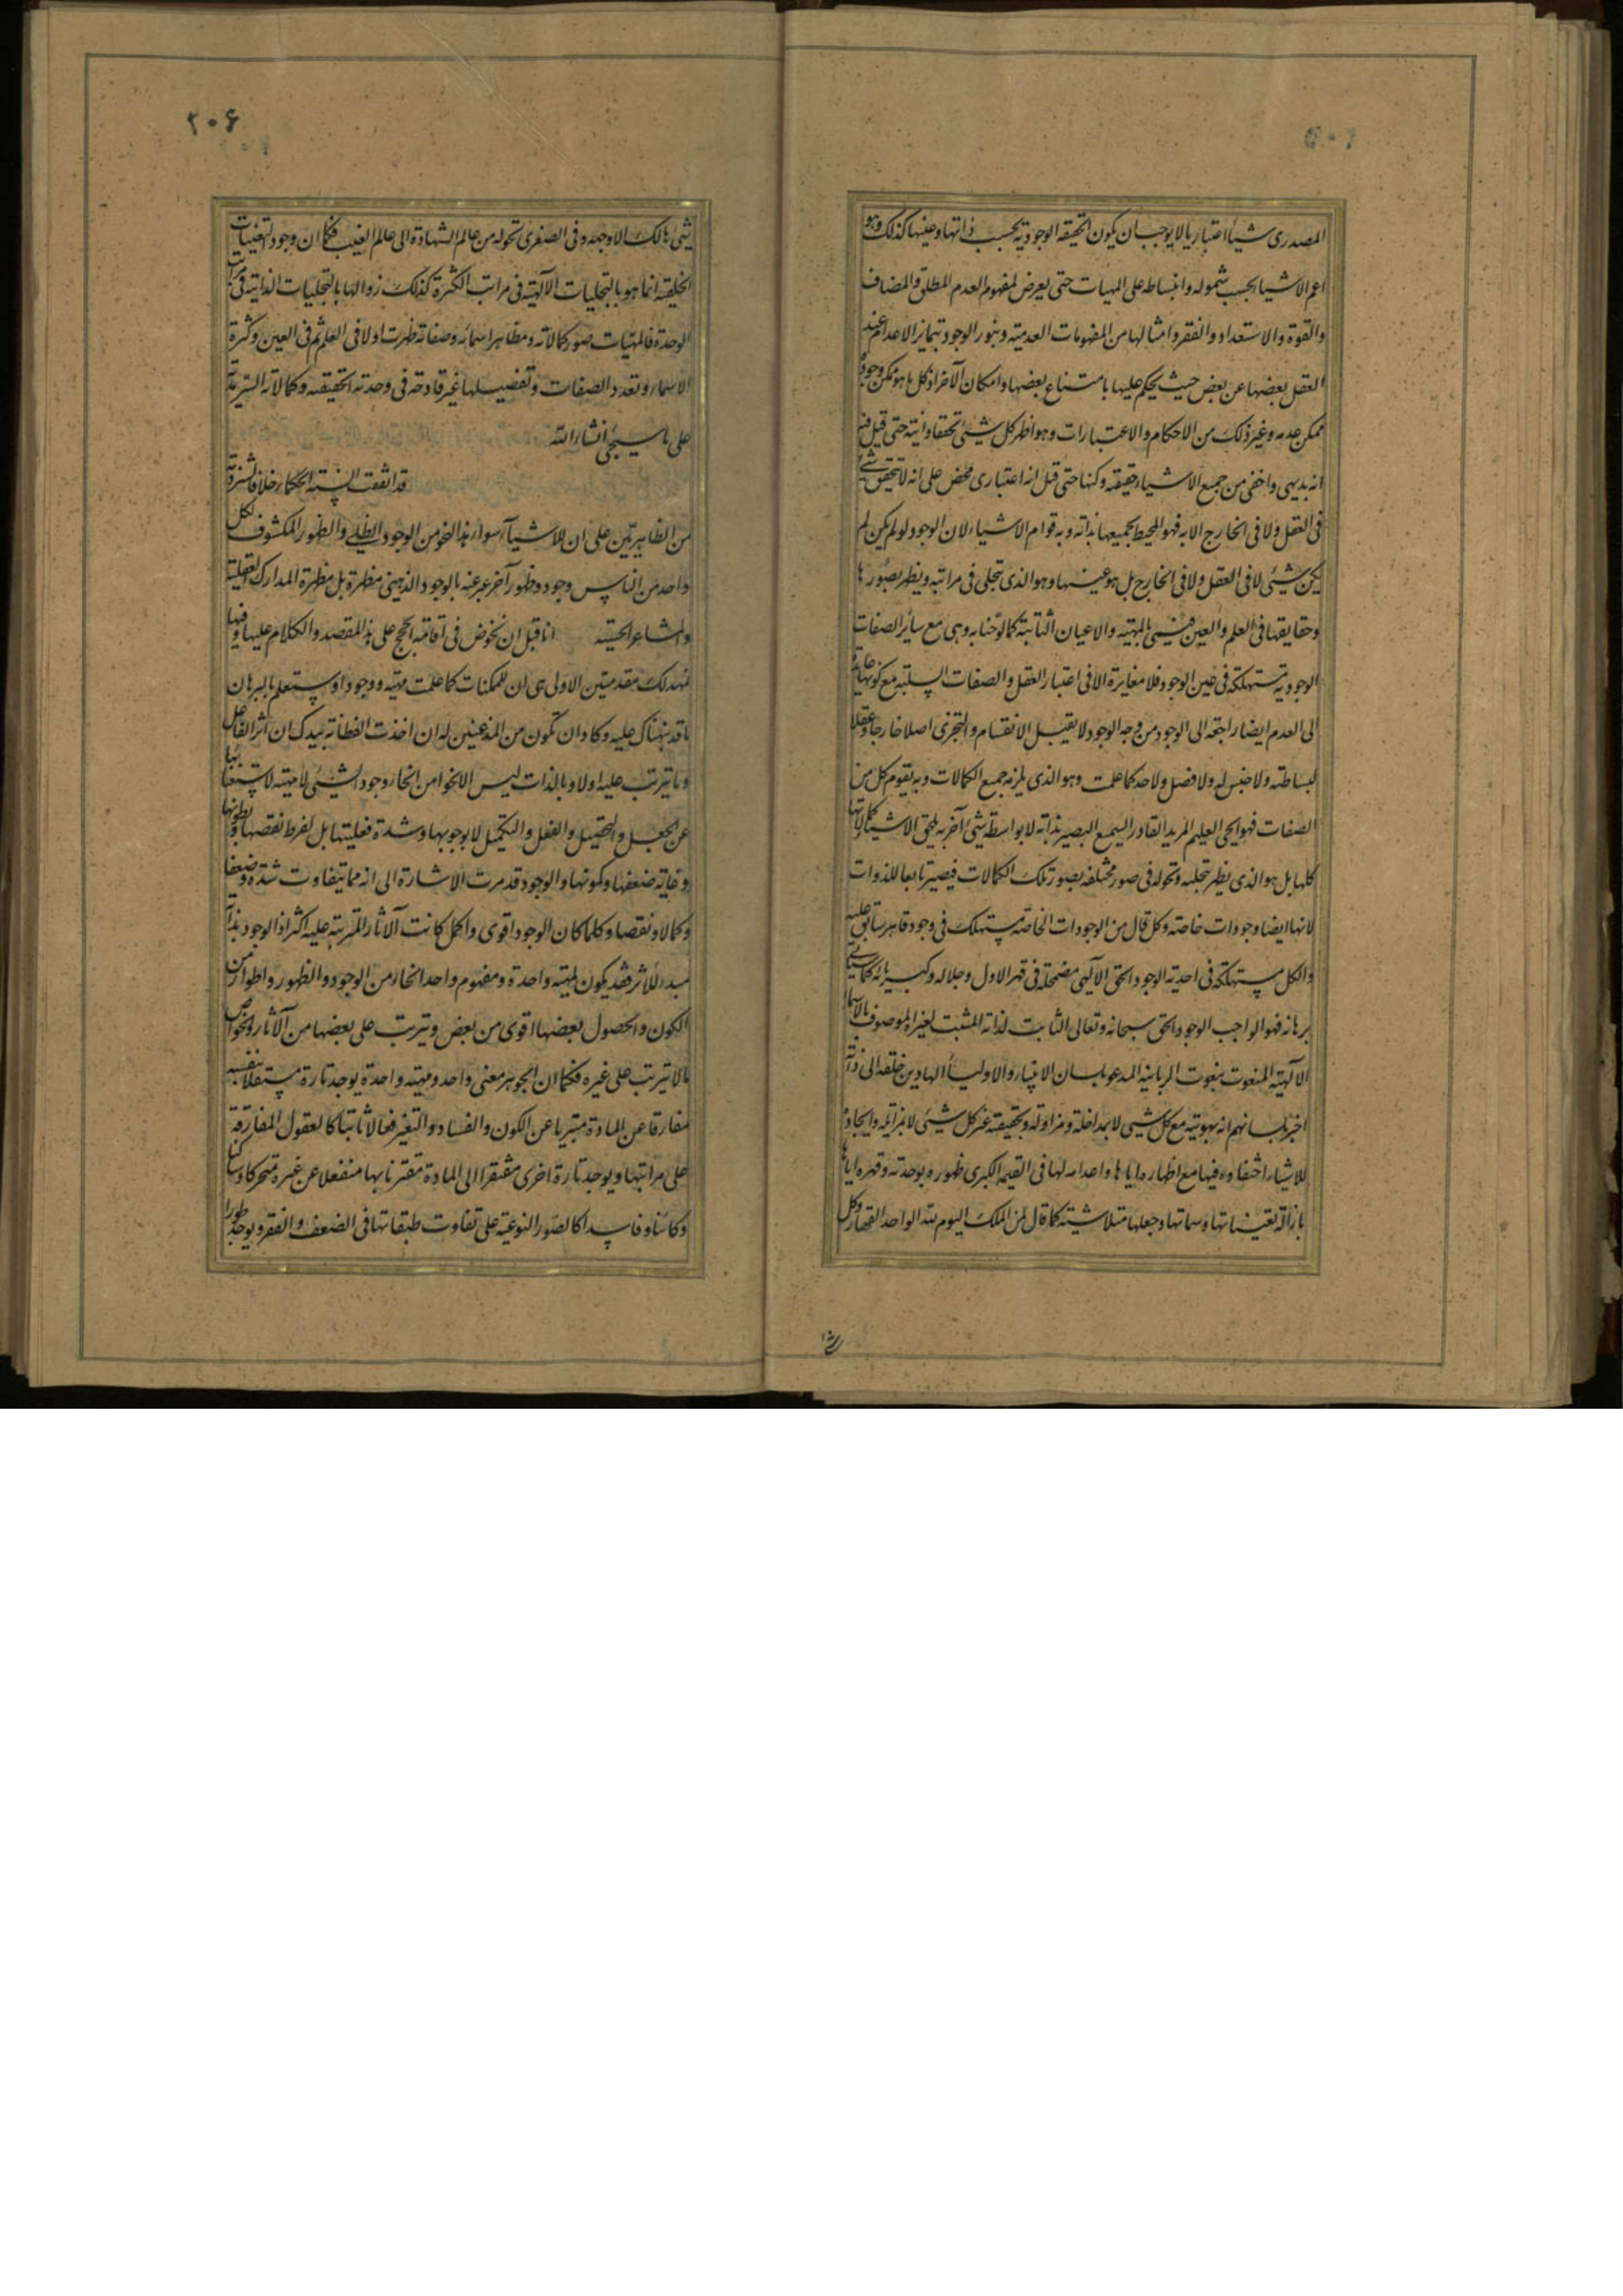 المصدری شیأ اعتباریا لا یوجب ان یکون الحقیقة الوجودیة بحسب ذاتها و عینها کذلک و هو
اعم الاشیا بحسب شموله و انبساطه علی المهیات حتی یعرض لمفهوم العدم المطلق و المضاف
و القوة و الاستعداد و الفقر و امثالها من المفهومات العدمیة و بنور الوجود یتمایز الاعدام عند
العقل بعضها عن بعض حیث یحکم علیها بامتناع بعضها و امکان الآخر اذ کل ما هو ممکن وجوده
ممکن عدمه و غیر ذلک من الاحکام و الاعتبارات و هو اظهر کل شیئ تحققا و انیة حتی قیل فیه
انه بدیهی و اخفی من جمیع الاشیاء حقیقة و کنها حتی قیل انه اعتباری محض علی انه لا یتحقق شیئ
فی العقل و لا فی الخارج الا به فهو المحیط بجمیعها بذاته و به قوام الاشیاء لان الوجود لو لم یکن لم
یکن شیئ لا فی العقل و لا فی الخارج بل هو عینها و هو الذی تجلی فی مراتبه و یظهر بصورها
و حقایقها فی العلم و العین فیسمی بالمهیة و الاعیان الثابتة کما لوحنا به و هی مع سایر الصفات
الوجودیة مستهلکة فی عین الوجود فلا مغایرة الا فی اعتبار العقل و الصفات السلبیة مع کونها عایدة
الی العدم ایضا راجعة الی الوجود من وجه الوجود لا یقبل الانقسام و التجزی اصلا خارجا و عقلا
لبساطته و لا جنس له و لا فصل و لا حد کما علمت و هو الذی یلزمه جمیع الکمالات و به یقوم کل من
الصفات فهو الحی العلیم المرید القادر السمیع البصیر بذاته لا بواسطة شیئ آخر به یلحق الاشیا کمالاتها
کلها بل هو الذی یظهر بتجلیه و تحوله فی صور مختلفة بصور تلک الکمالات فیصیر تابعا للذوات
لانها ایضا وجودات خاصة و کل قال من الوجودات الخاصة مستهلک فی وجود قاهر سابق علیه
و الکل مستهلکة فی احدیة الوجود الحق الآلهی مضمحلة فی قهر الاول و جلاله و کبریائه کما سیأتی
برهانه فهو الواجب الوجود الحق سبحانه و تعالی الثابت لذاته المثبت لغیره الموصوف بالاسماء
الآلهیة المنعوت بنعوت الربانیة المدعو بلسان الانبیاء و الاولیاء الهادین خلقه الی ذاته
اخبر بلسانهم انه بهویته مع کل شیئ لا بمداخلة و مزاولة و بحقیقته غیر کل شیئ لا بمزایلة و ایجاده
للاشیاء اختفاؤه فیها مع اظهاره ایاها و اعدامه لها فی القیمة الکبری ظهوره بوحدته و قهره ایاها
بازالة تعیناتها و سماتها و جعلها متلاشیة کما قال لمن الملک الیوم لله الواحد القهار و کل
۲۰۶
شیئ هالک الا وجهه و فی الصغری تحوله من عالم الشهادة الی عالم الغیب فکما ان وجود التعینات
الخلقیة انما هو بالتجلیات الآلهیة فی مراتب الکثرة کذلک زوالها بالتجلیات الذاتیة فی مراتب
الوحدة فالمهیات صور کمالاته و مظاهر اسمائه و صفاته ظهرت اولا فی العلم ثم فی العین و کثرة
الاسماء و تعدد الصفات و تفصیلها غیر قادحة فی وحدته الحقیقیة و کمالاته السرمدیة
علی ما سیجئ انشاء الله
قد اتفقت السنة الحکماء خلافا لشرذمة
من الظاهریین علی ان للاشیاء سوا هذا النحو من الوجود الظلی و الظهور المکشوف لکل
واحد من الناس وجود و ظهور آخر عبر عنه بالوجود الذهنی مظهره بل مظهره المدارک العقلیة
و المشاعر الحسیة انا قبل ان نخوض فی اقامة الحجج علی هذا المقصد و الکلام علیها و فیها
نمهد لک مقدمتین الاولی هی ان للممکنات کما علمت مهیة و وجودا و ستعلم بالبرهان
ما قد نبهناک علیه و کاد ان تکون من المذعنین له ان اخذت الفطانة بیدک ان اثر الفاعل
و ما یترتب علیه اولا و بالذات لیس الا نحوا من انحاء وجود الشیئ لا مهیته لاستغنائها
عن الجعل و التحصیل و الفعل و التکمیل لا لوجوبها و شدة فعلیتها بل لفرط نقصها و بطونها
و غایة ضعفها و کمونها و الوجود قد مرت الاشارة الی انه مما یتفاوت شدة و ضعفا
و کمالا و نقصا و کلما کان الوجود اقوی و اکمل کانت الآثار المترتبة علیه اکثر اذ الوجود بذاته
مبدء للاثر فقد یکون لمهیة واحدة و مفهوم واحد انحاء من الوجود و الظهور و اطوار من
الکون و الحصول بعضها اقوی من بعض و یترتب علی بعضها من الآثار و الخواص
ما لا یترتب علی غیره فکما ان الجوهر معنی واحد و مهیة واحدة یوجد تارة مستقلا بنفسه
مفارقا عن المادة متبریا عن الکون و الفساد و التغیر فعالا ثابتا کالعقول المفارقة
علی مراتبها و یوجد تارة اخری مفتقرا الی المادة مقترنا بها منفعلا عن غیره متحرکا و ساکنا
و کائنا و فاسدا کالصور النوعیة علی تفاوت طبقاتها فی الضعف و الفقر و یوجد طورا